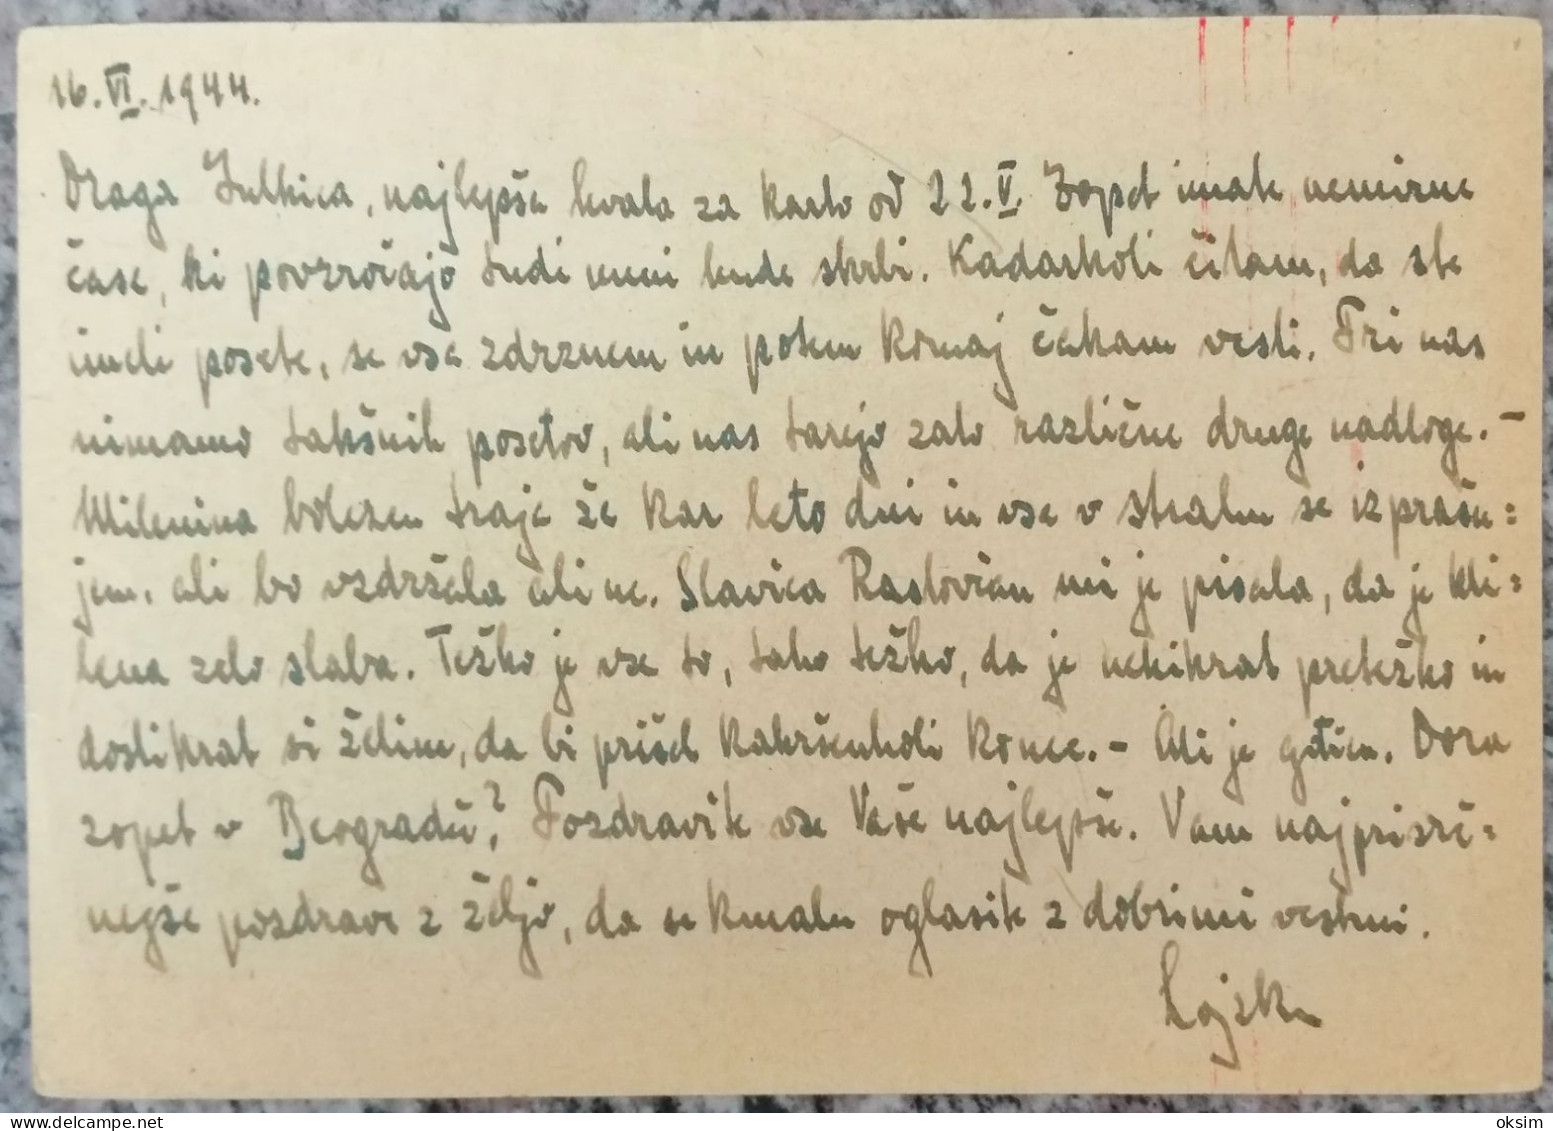 16. VI. 1944.
Draga Julkica, najlepše hvala za karto od 22. V. Zopet imate nemirne
čase, ki povzročajo tudi meni hude skrbi. Kadarkoli čitam, da ste
imeli posete, se vsa zdrznem in potem komaj čakam vesti. Pri nas
nimamo takšnih posetov, ali nas tarejo zato različne druge nadloge. -
Milenina bolezen traje že kar leto dni in vse v strahu se izprašu=
jem, ali bo vzdržala ali ne. Slavica Raslovičeu mi je pisala, da je
zelo slaba. Težko je vse to, tako težko, da je nekikrat pretežko in
dostikrat si želim, da bi prišel kakršenkoli konec. - Ali je gčica. Dora
zopet v Beogradu? Pozdravite vse Vaše najlepše. Vam najprisrč=
nejše pozdrave z željo, da se kmalu oglasite z dobrimi vestmi.
Lojzka
oksim